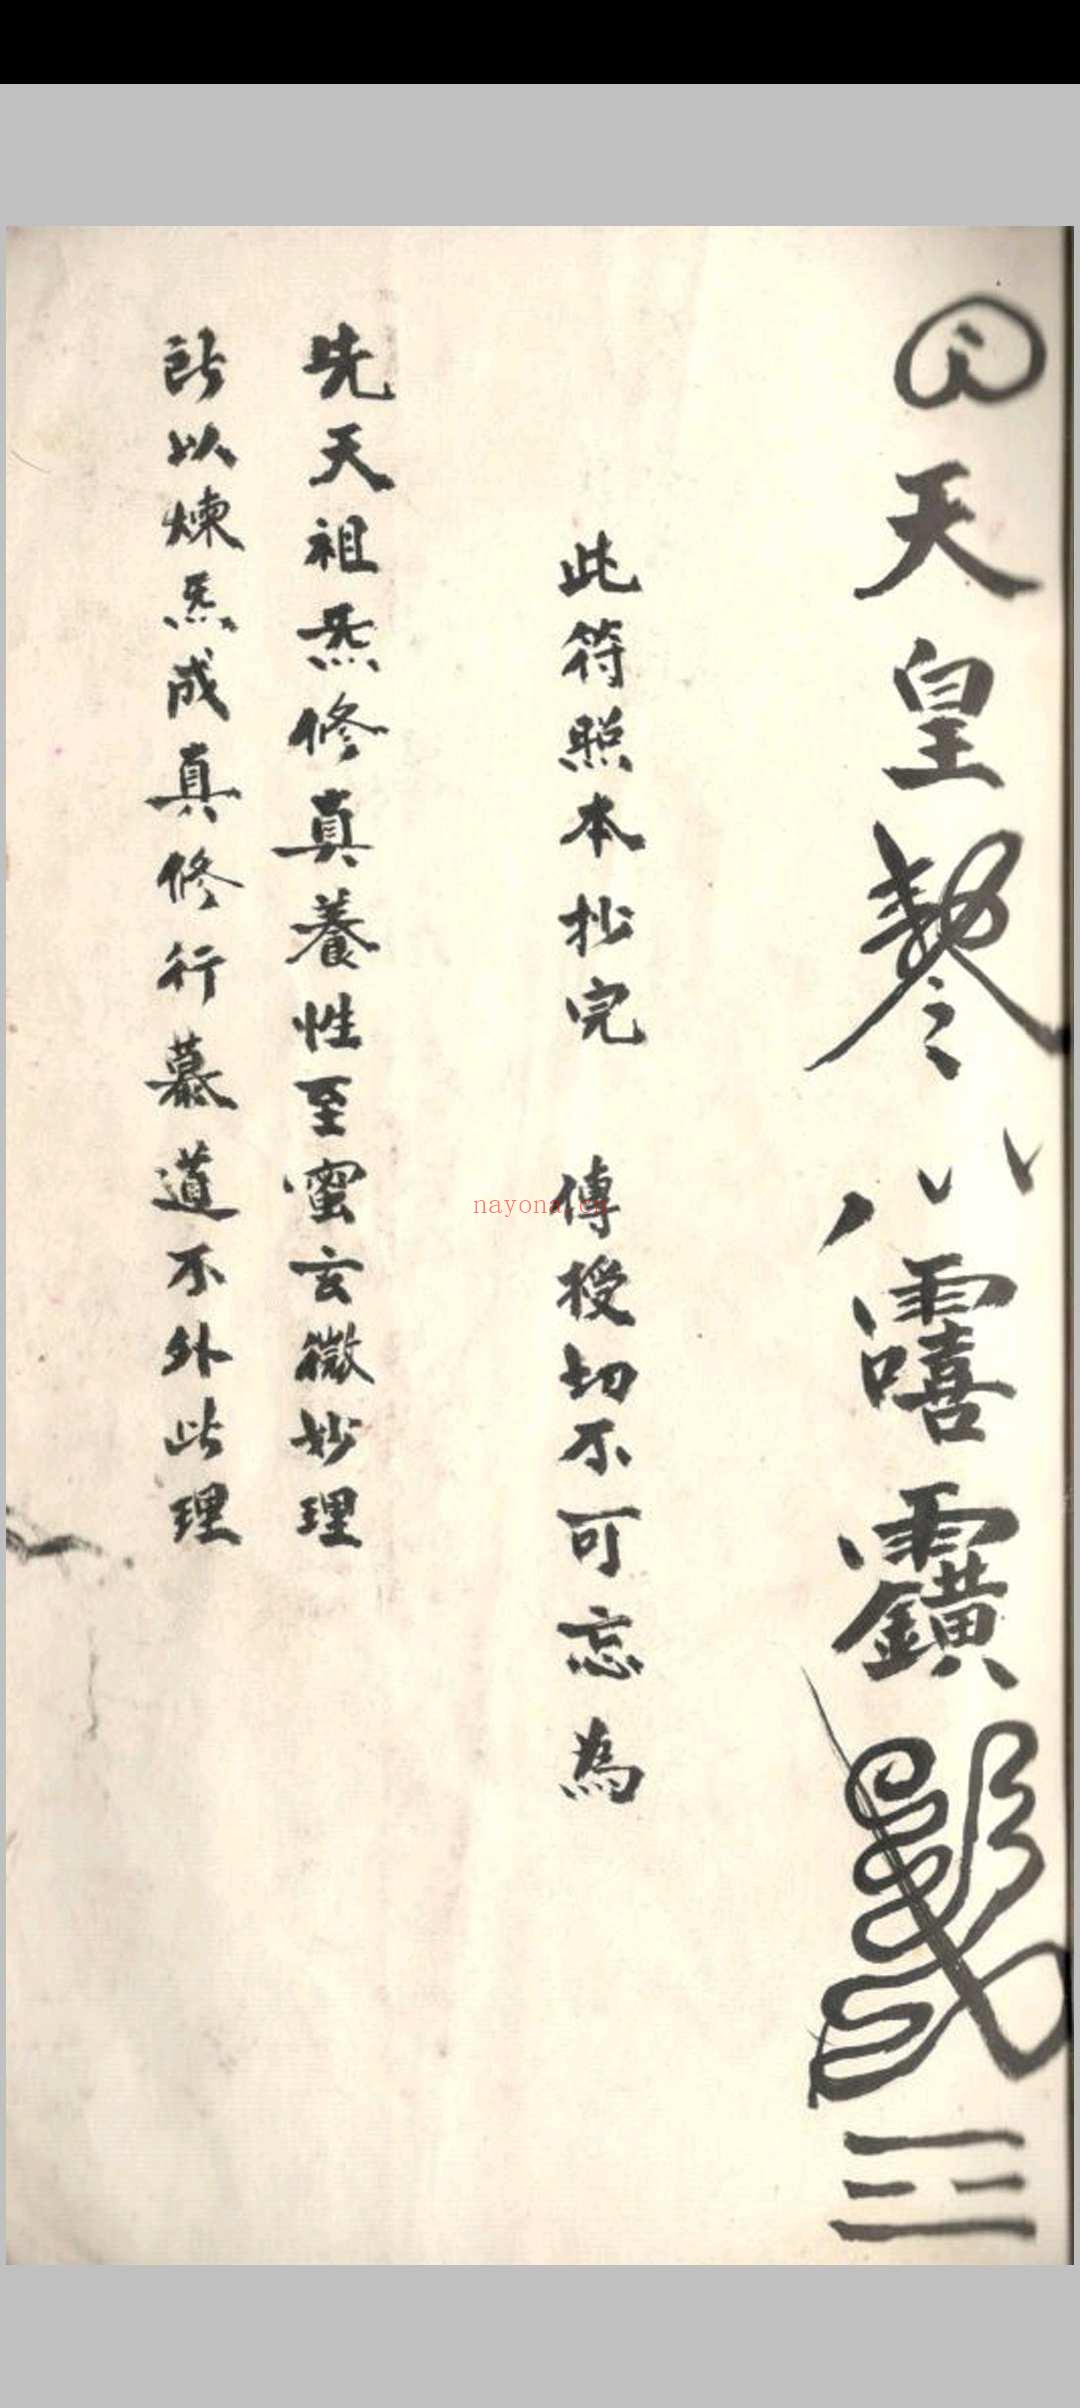 天皇
此符照本抄完 傳授切不可忘為
先天祖炁修真養性至蜜玄微妙理
所以煉炁成真修行慕道不外此理
nayona.cn